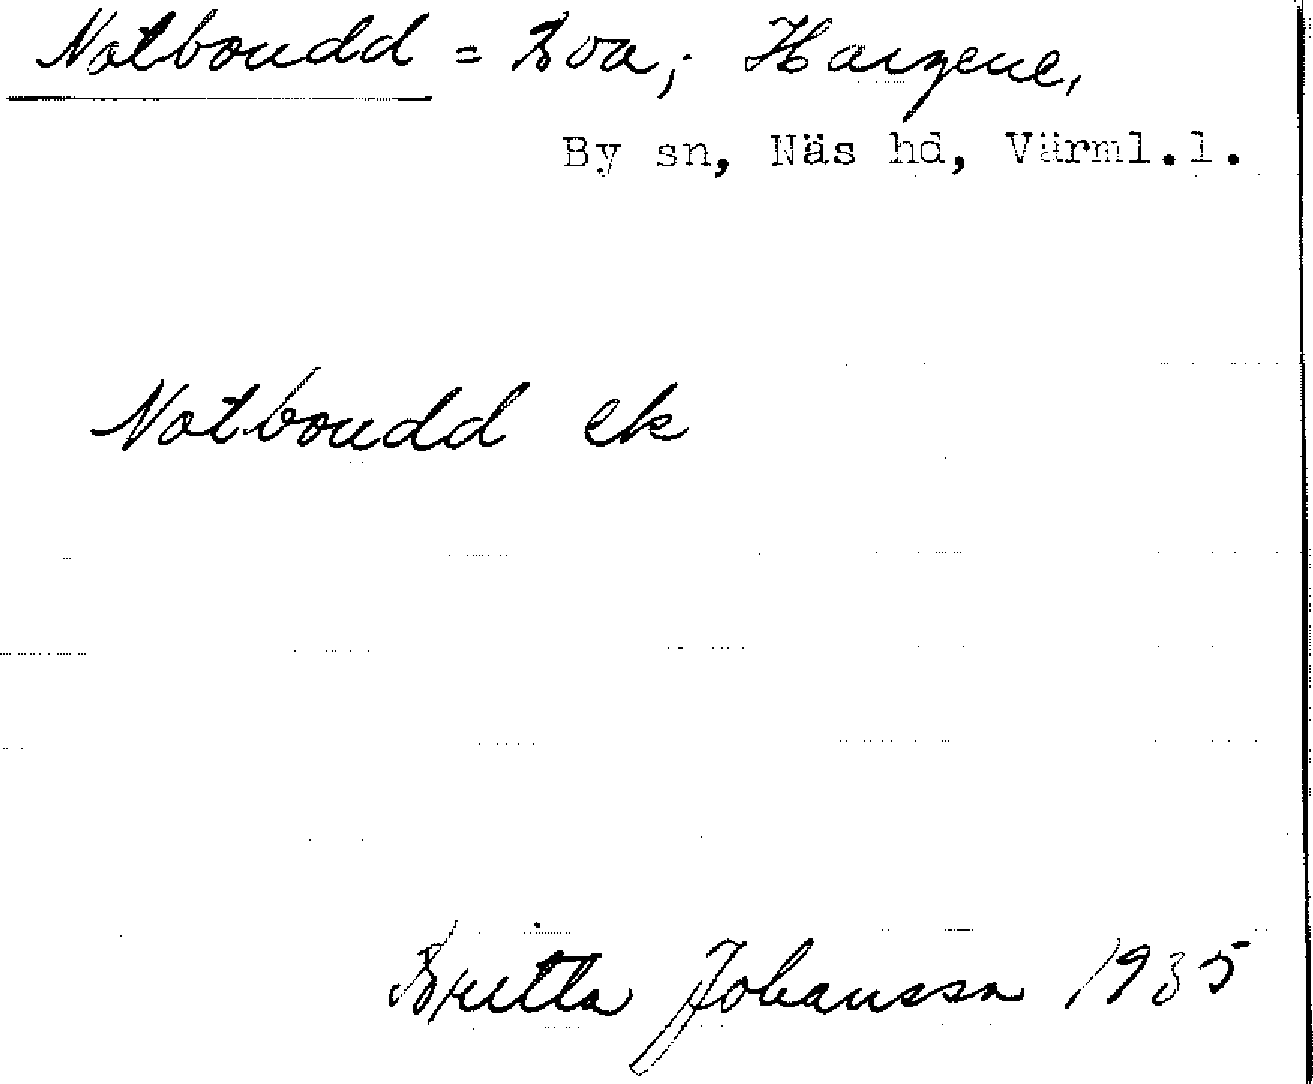 Notboudd = Boa; Hargene,
By sn, Näs hd, Värml.l.
Notboudd ek
Britta Johansson 1935